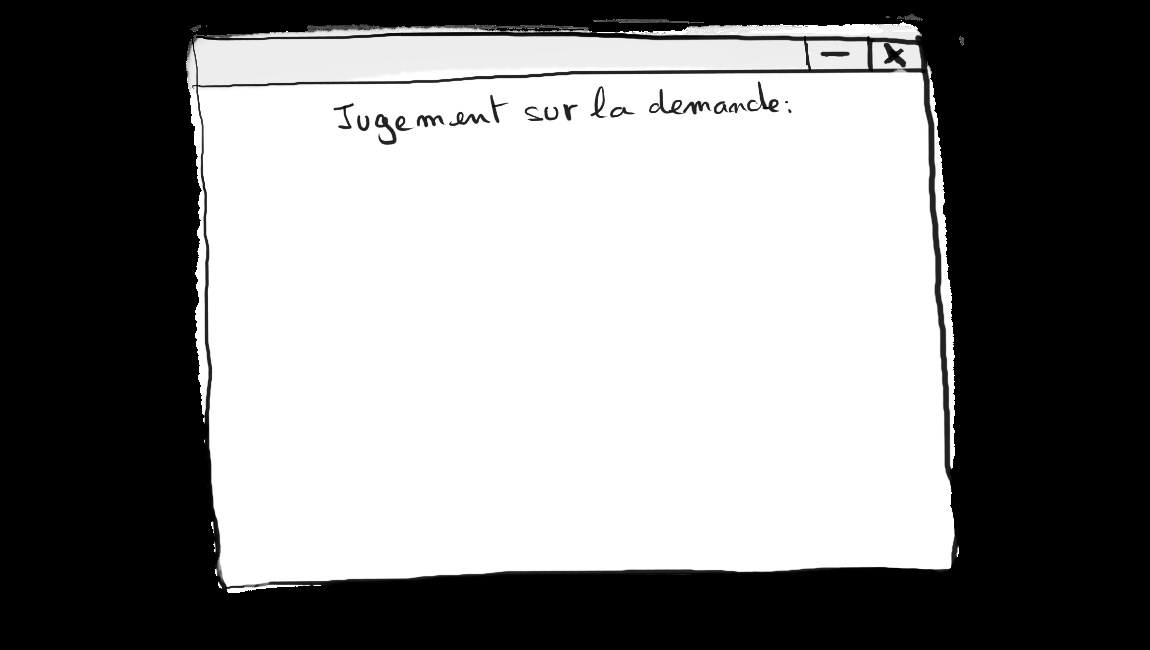 Jugement sur la demande: